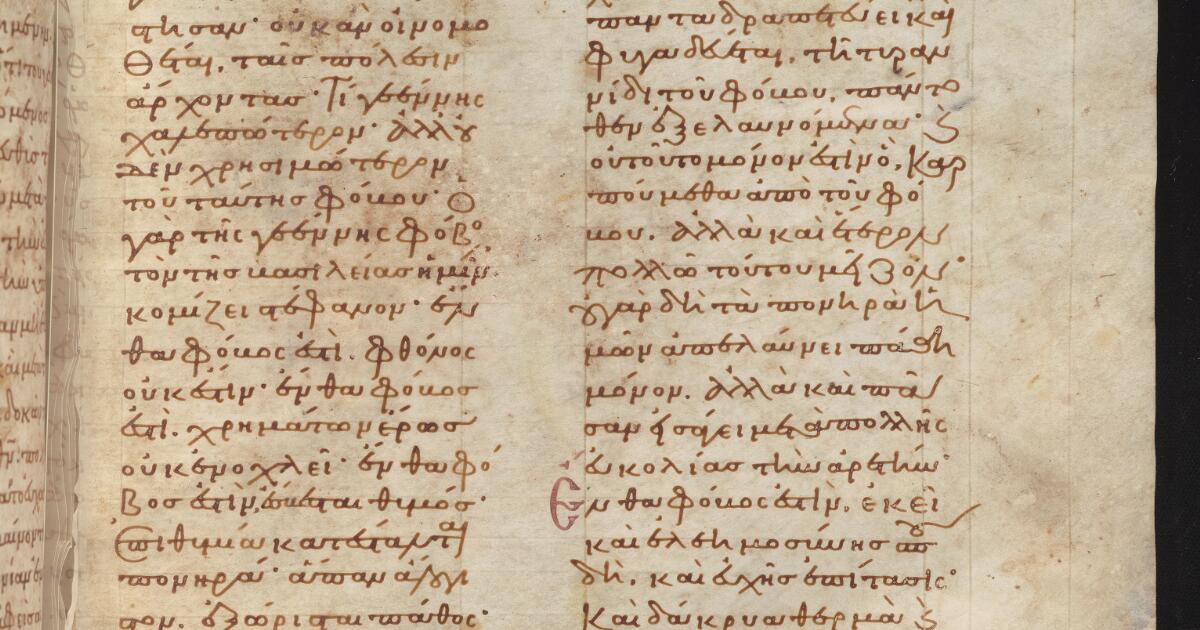 στησαν· οὐκ ἂν οἱ νομο
θέται, ταῖς πόλεσιν
ἄρχοντας· Τί γεέννης
χαλεπώτερον· ἀλλ' οὐ
δὲν χρησιμώτερον
τοῦ ταύτης φόβου· Ὁ
γὰρ τῆς γεέννης φόβος
τὸν τῆς βασιλείας ἡμῖν
κομίζει στέφανον· ἔν
θα φόβος ἐστί. φθόνος
οὐκ ἔστιν· ἔνθα φόβος
ἐστί. χρημάτων ἔρως
οὐκ ἐνοχλεῖ· ἔνθα φό
βος ἐστὶν, ἔσβεσται θυμός·
Ἐπιθυμία κατέσταλται
πονηρά· ἅπαν ἄλογι
στον. ἐξώρισται πάθος·
παν τα δραπετεύει καὶ
φυγαδεύεται, τῆ τυραν
νίδι τοῦ φόβου, πάντο
θεν ἐξελαυνόμενα· καὶ
οὐ τοῦτο μόνον ἐστὶν ὃ, καρ
πούμεθα ἀπὸ τοῦ φό
βου. ἀλλὰ καὶ ἕτερον
πολλῶ τούτου μεῖζον·
οὐ γὰρ δὴ τὰ πονηρὰ ἡ
μῶν ἀπελαύνει πάθη
μόνον. ἀλλὰ καὶ πᾶ
σαν εἰσάγει μετὰ πολλῆς
εὐκολίας τὴν ἀρετήν·
Ἔνθα φόβος ἐστὶν, ἐκεῖ
καὶ ἐλεημοσύνης σπου
δὴ, καὶ εὐχῆς ἐπίτασις·
Καὶ δάκρυα θερμὰ καὶ